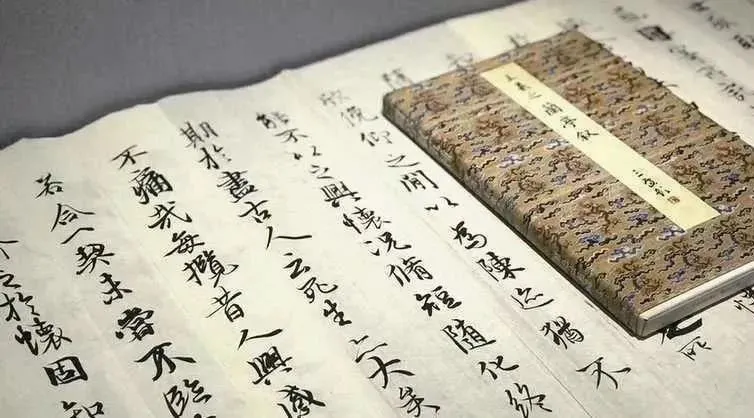 王羲之蘭亭敘
欣俛仰之間以為陳迹猶不
能不以之興懷況脩短隨化終
期於盡古人云死生亦大矣
不痛哉每攬昔人興感
若合一契未嘗不臨
之於懷固知